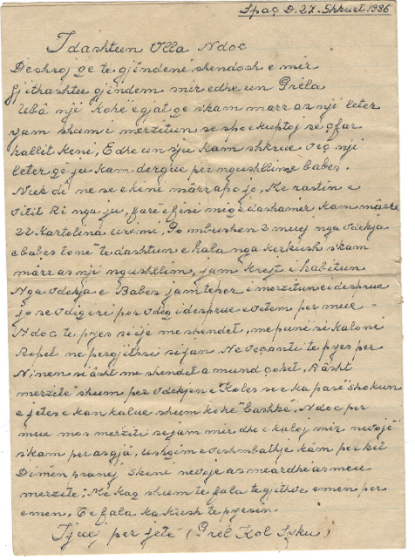 Spaç D. 27. Shkurt 1986
I dashtun Vlla Ndoc
Deshroj qe te gjindeni shendosh e mir
Gjithashtu gjindem mir edhe un Prela
U bâ një kohë e gjat qe skam marr as një leter
jam shum i merzitun se spo kuptoj se qfar
hallit keni, Edhe un sju kam shkrue veq një
leter që ju kam dergue per ngushllimë babes.
Nuk di ne se e keni marr apo jo, Me rastin e
vitit Ri nga ju, farë e fisi miqë dashamir kam marrë
22 Kartolina urimi, Po mbushen 2 muej nga vdekja
e babes tonë te dashtun e hala nga kerkush skam
marr as një ngushllim, jam krejt i habitun
Nga vdekja e Babes jam teper i merzitun e i despruem
jo se vdiq
Ndoc te pyes si je me shendet, me punë si kaloni
Ropet ne pergjithsi si jan. Ne veçanti te pyes per
Nënen si âsht me shendet a mund çohet, A âsht
merzitë shum per vdekjen e Koles se e ka parë shokun
e jetes e kan kalue shum kohë bashkë, Ndoc per
mue mos merzitë se jam mir dhe kaloj mir nevojë
skam per asgja, ushqim e veshmbathje kam per kët
Dimën pranej skeni nevojë as me ardhe as me u
merzitë; Me kaq shum te fala te gjithve emen per
emen, Te fala ka kush te pyesin.
Tjuej per jetë (Preb Kol